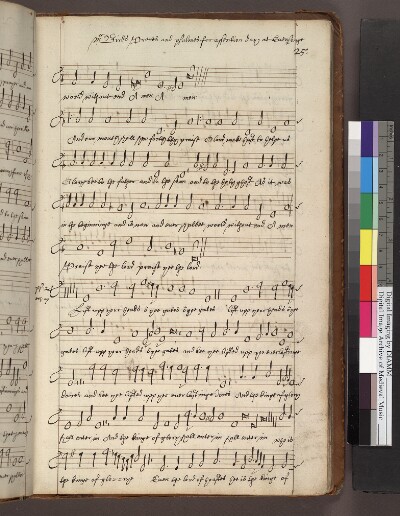 Mr Birds Preces and psalmes for assention day at Evensonge
25
world without end A men A men
And our mouth shall shew forth thy praise O lord make hast to helpe us
Glory be to the father and to the sonn and to the holy ghost As it was
in the beginninge and is now and ever shalbe world without end A men
Praise yee the lord praise yee the lord
Lift upp your heads o yee gates o yee gates lift upp your heads o yee
gates lift upp your heads o yee gates and bee yee lifted upp yee everlastinge
doores and bee yee lifted upp yee everlastinge doores And the kinge of glory
shall enter in And the kinge of glory shall enter in shall enter in who is
the kinge of glorye Even the lord of hoastes hee is the kinge of
Digital Imaging by DIAMM
Digital Image Archive of Medieval Music